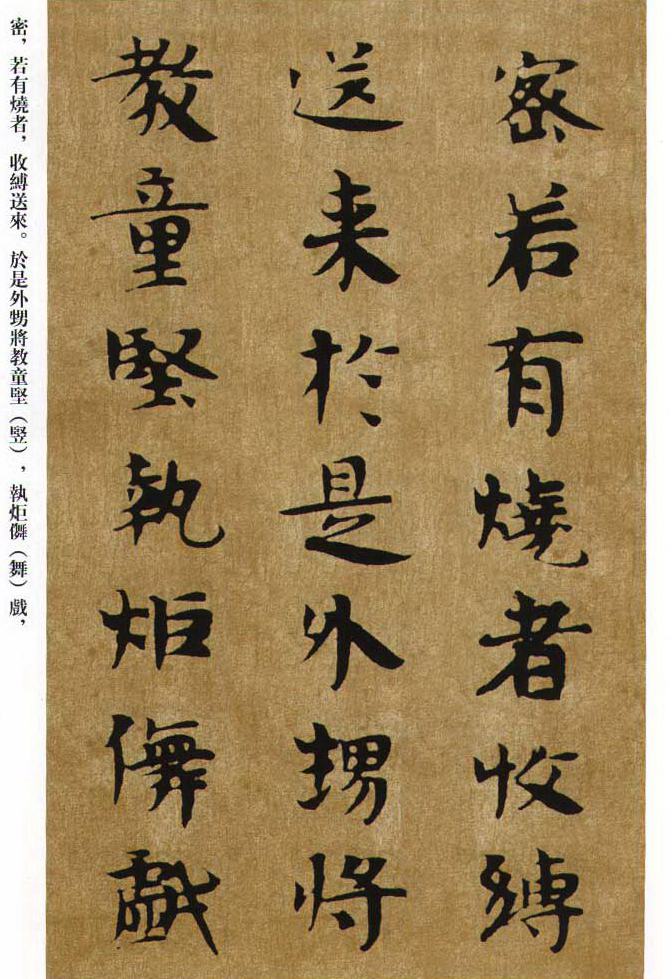 密若有燒者收縛
送来於是外甥將
教童堅執炬儛戲
密，若有燒者，收縛送來。於是外甥將教童堅（竪），執炬儛（舞）戲，